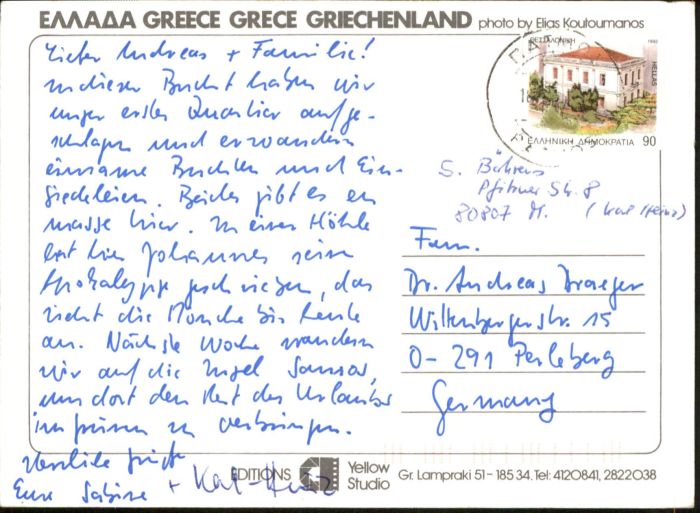 ΕΛΛΑΔΑ GREECE GRECE GRIECHENLAND photo by Elias Koutoumanos
Lieber Andreas + Familie!
in dieser Bucht haben wir
unser erstes Quartier aufge-
schlagen und erwandern
einsame Buchten und Ein-
siedeleien. Beides gibt es en
masse hier. In einer Höhle
hat hier Johannes seine
Apokalypse geschrieben, das
zieht die Mönche bis heute
an. Nächste Woche wandern
wir auf die Insel Samos,
um dort den Rest des Urlaubs
im grünen zu verbringen.
Herzliche Grüße
Eure Sabine + Karl-Heinz
ΘΕΣΣΑΛΟΝΙΚΗ 1992
HELLAS
ΕΛΛΗΝΙΚΗ ΔΗΜΟΚΡΑΤΙΑ 90
S. Bährens
Pfitzner Str. 8
80807 M. (Karl Heinz)
Fam.
Dr. Andreas Draeger
Wittenbergerstr. 15
O-291 Perleberg
Germany
EDITIONS Yellow Studio
Gr. Lampraki 51 - 185 34. Tel: 4120841, 2822038